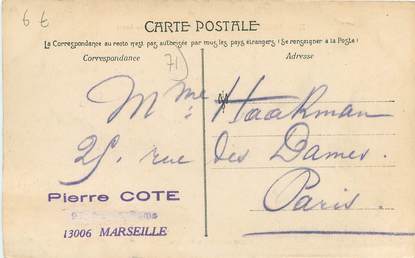 6 €
CARTE POSTALE
La Correspondance au recto n'est pas autorisée par tous les pays étrangers (Se renseigner à la Poste)
Correspondance
Adresse
71
Mme Haakman
25. rue des Dames.
Paris.
Pierre COTE
13006 MARSEILLE